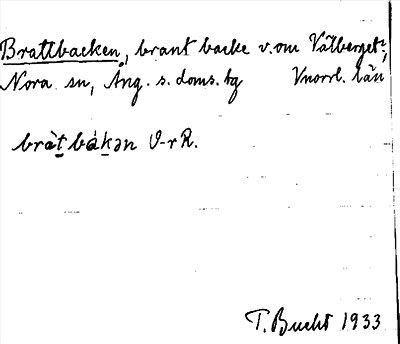 Brattbacken, brant backe v. om Vålberget,
Nora sn, Ång. s. doms. hg Vnorrl. län
bràt bákən O-r R.
T. Bucht 1933